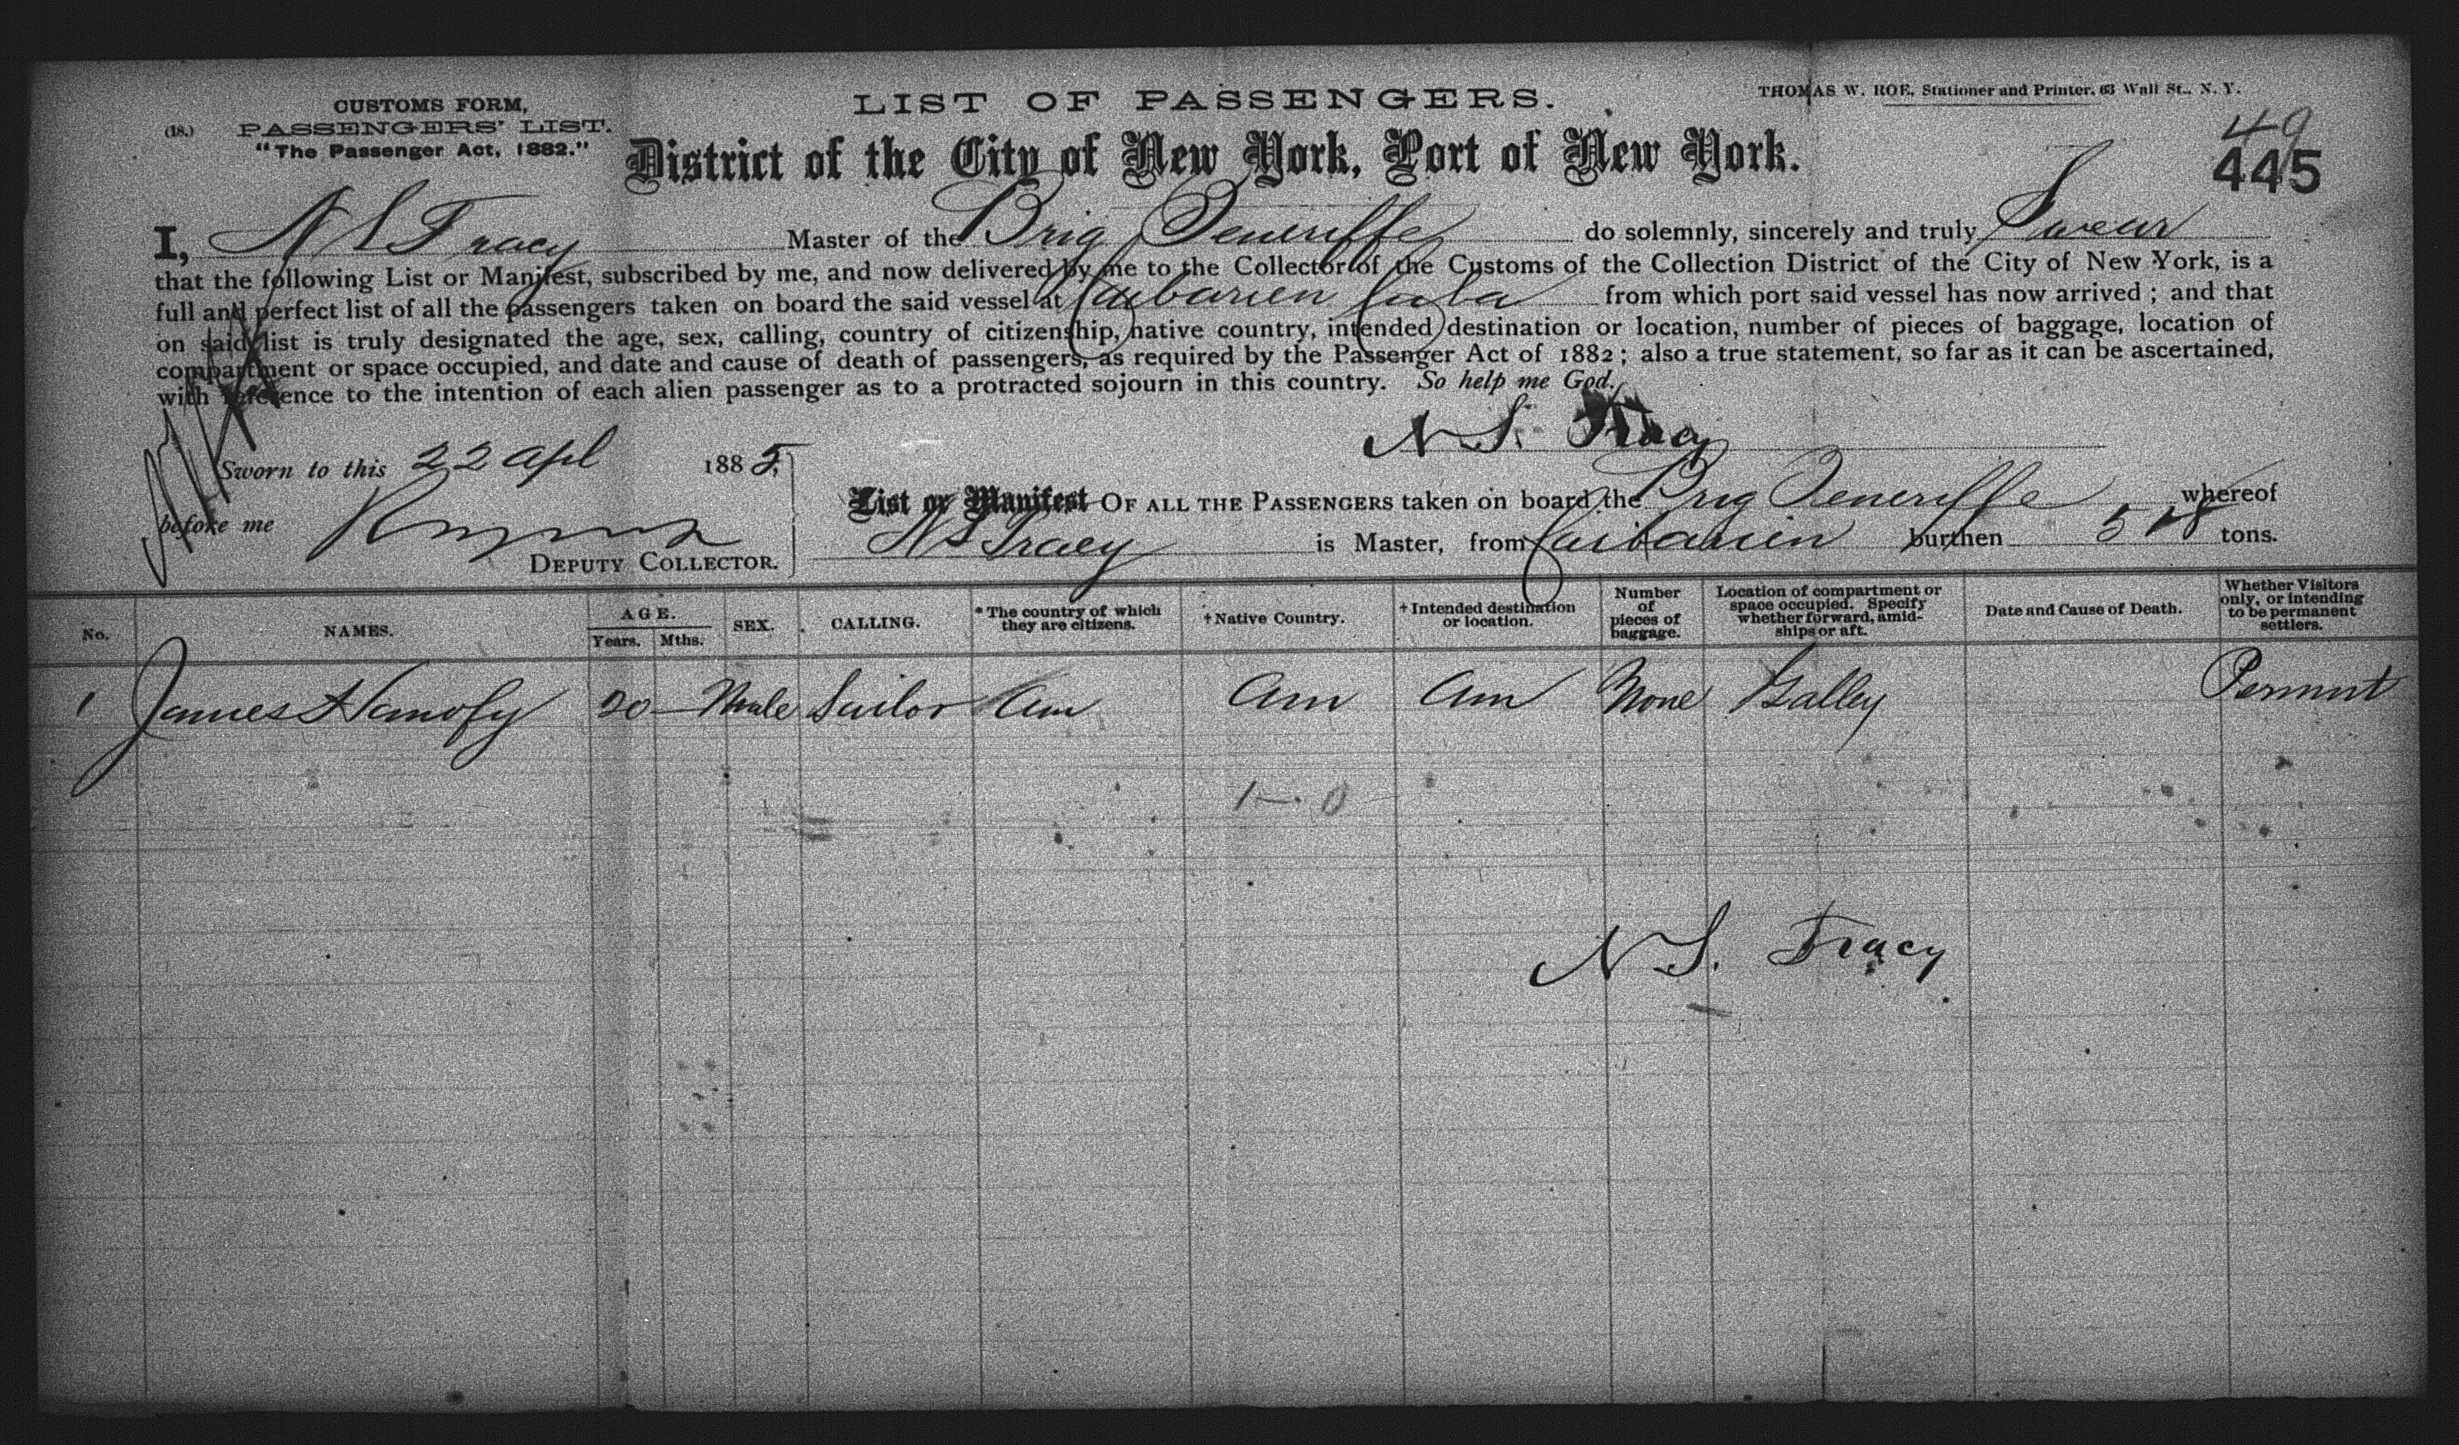 CUSTOMS FORM,
(18.) PASSENGERS' LIST.
"The Passenger Act, 1882."
LIST OF PASSENGERS.
THOMAS W. ROE, Stationer and Printer, 63 Wall St., N. Y.
49
445
District of the City of New York, Port of New York.
I, N S Tracy Master of the Brig Teneriffe do solemnly, sincerely and truly Swear
that the following List or Manifest, subscribed by me, and now delivered by me to the Collector of the Customs of the Collection District of the City of New York, is a
full and perfect list of all the passengers taken on board the said vessel at Caibarien Cuba from which port said vessel has now arrived ; and that
on said list is truly designated the age, sex, calling, country of citizenship, native country, intended destination or location, number of pieces of baggage, location of
compartment or space occupied, and date and cause of death of passengers, as required by the Passenger Act of 1882 ; also a true statement, so far as it can be ascertained,
with reference to the intention of each alien passenger as to a protracted sojourn in this country. So help me God.
N. S. Tracy
Sworn to this 22 Apl 1885,
before me
DEPUTY COLLECTOR.
List or Manifest OF ALL THE PASSENGERS taken on board the Brig Teneriffe whereof
N S Tracy is Master, from Caibarien burthen tons.
No. NAMES. AGE. Years. Mths. SEX. CALLING. * The country of which they are citizens. † Native Country. † Intended destination or location. Number of pieces of baggage. Location of compartment or space occupied. Specify whether forward, amidships or aft. Date and Cause of Death. Whether Visitors only, or intending to be permanent settlers.
1 James Hanofy 20 — Male Sailor Am Am Am None Galley Permnt
1—.0
N S. Tracy